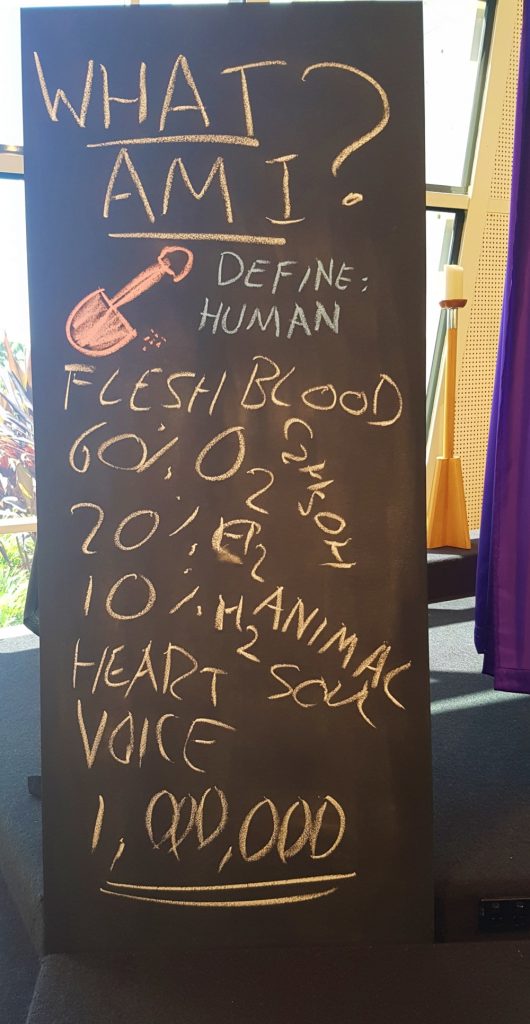 WHAT
AM I?
DEFINE:
HUMAN
FLESH BLOOD
60% O2
C2H5OH
20% C2
10% H2
ANIMAL
HEART SOUL
VOICE
1,000,000